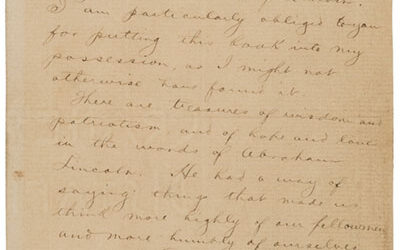 I am particularly obliged to you
for putting this book into my
possession, as I might not
otherwise have found it.
There are treasures of wisdom and
patriotism and of hope and love
in the words of Abraham
Lincoln. He had a way of
saying things that made us
think more highly of our fellowmen
and more humbly of ourselves